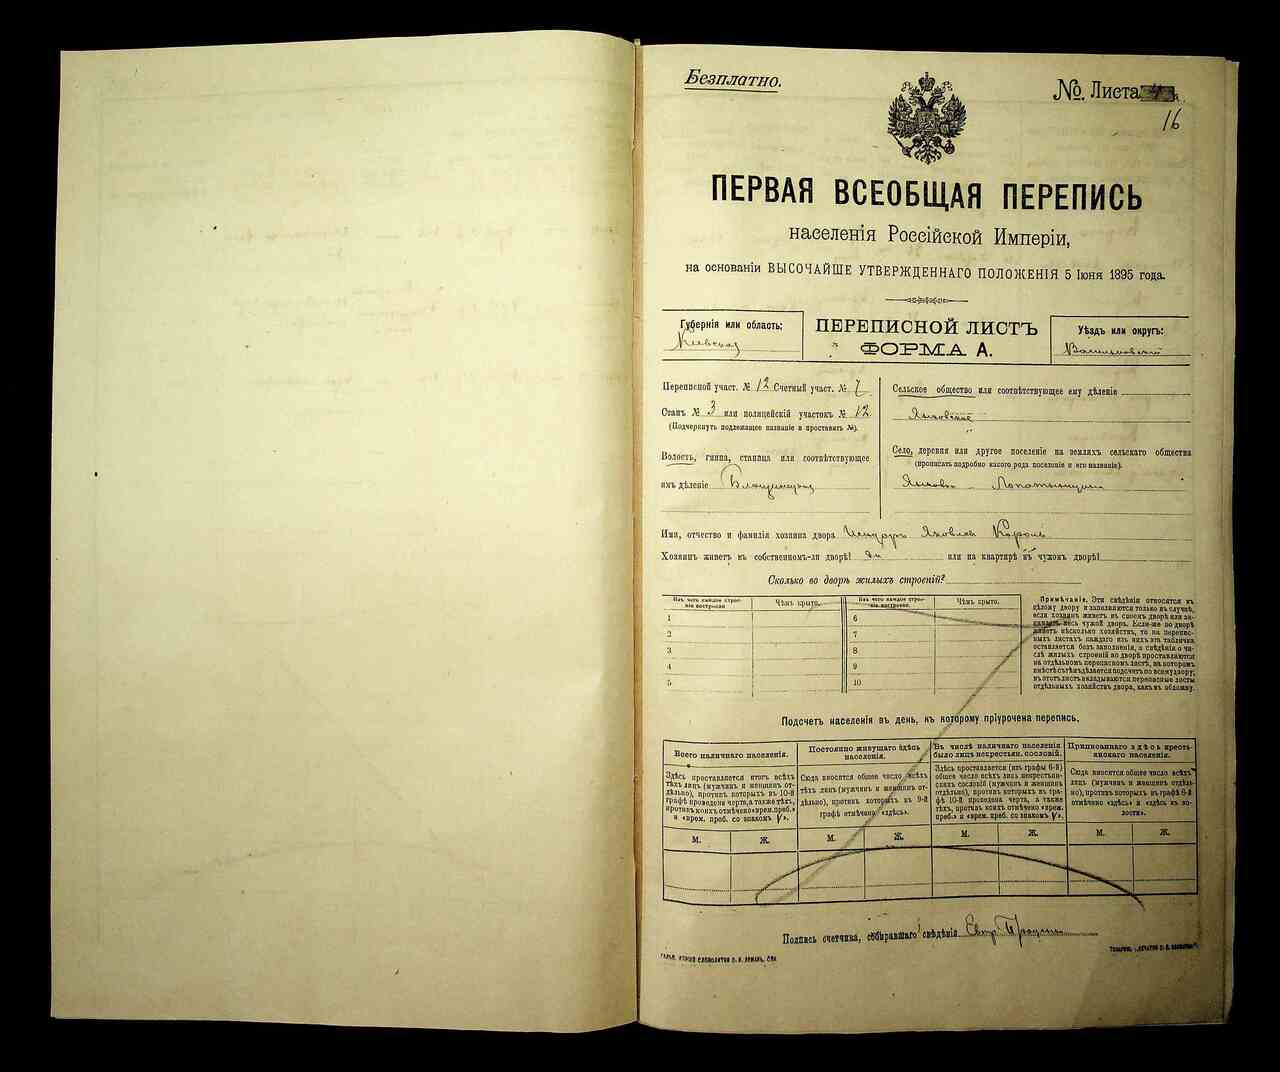 Безплатно.
№. Листа
16
ПЕРВАЯ ВСЕОБЩАЯ ПЕРЕПИСЬ
населенія Россійской Имперіи,
на основаніи ВЫСОЧАЙШЕ УТВЕРЖДЕННАГО ПОЛОЖЕНІЯ 5 Іюня 1895 года.
Губернія или область:
Кіевская
ПЕРЕПИСНОЙ ЛИСТЪ
ФОРМА А.
Уѣздъ или округъ:
Переписной участ. № 12 Счетный участ. № 7
Станъ № 3 или полицейскій участокъ № 12
(Подчеркнуть подлежащее названіе и проставить №).
Волость, гмина, станица или соотвѣтствующее
имъ дѣленіе
Сельское общество или соотвѣтствующее ему дѣленіе
Янковское
Село, деревня или другое поселеніе на земляхъ сельскаго общества
(прописать подробно какого рода поселеніе и его названіе).
Имя, отчество и фамилія хозяина двора Яковлев Король
Хозяинъ живетъ въ собственномъ-ли дворѣ? да или на квартирѣ въ чужомъ дворѣ?
Сколько во дворѣ жилыхъ строеній?
Изъ чего каждое строеніе построено
Чѣмъ крыто.
Изъ чего каждое строеніе построено.
Чѣмъ крыто.
1 6
2 7
3 8
4 9
5 10
Примѣчаніе. Эти свѣдѣнія относятся къ
цѣлому двору и заполняются только въ случаѣ,
если хозяинъ живетъ въ своемъ дворѣ или занимаетъ весь чужой дворъ. Если-же во дворѣ
живетъ нѣсколько хозяйствъ, то на переписныхъ листахъ каждаго изъ нихъ эта табличка
оставляется безъ заполненія, а свѣдѣнія о числѣ жилыхъ строеній во дворѣ проставляются
на отдѣльномъ переписномъ листѣ, на которомъ
вмѣстѣ съ тѣмъ дѣлается подсчетъ по всему двору;
въ этотъ листъ вкладываются переписные листы
отдѣльныхъ хозяйствъ двора, какъ въ обложку.
Подсчетъ населенія въ день, къ которому пріурочена перепись.
Всего наличнаго населенія.
Постоянно живущаго здѣсь
населенія.
Въ числѣ наличнаго населенія
было лицъ некрестьян. сословій.
Приписаннаго здѣсь крестьянскаго населенія.
Здѣсь проставляется итогъ всѣхъ
тѣхъ лицъ (мужчинъ и женщинъ отдѣльно), противъ которыхъ въ 10-й
графѣ проведена черта, а также тѣхъ,
противъ коихъ отмѣчено «врем. преб.»
и «врем. преб. со знакомъ V».
Сюда вносится общее число всѣхъ
тѣхъ лицъ (мужчинъ и женщинъ отдѣльно), противъ которыхъ въ 9-й
графѣ отмѣчено «здѣсь».
Здѣсь проставляется (изъ графы 6-й)
общее число всѣхъ лицъ некрестьянскихъ сословій (мужчинъ и женщинъ
отдѣльно), противъ которыхъ въ графѣ 10-й проведена черта, а также
тѣхъ, противъ коихъ отмѣчено «врем.
преб.» и «врем. преб. со знакомъ V».
Сюда вносится общее число всѣхъ
лицъ (мужчинъ и женщинъ отдѣльно), противъ которыхъ въ графѣ 8-й
отмѣчено «здѣсь» и «здѣсь въ волости».
М. Ж. М. Ж. М. Ж. М. Ж.
Подпись счетчика, собиравшаго свѣдѣнія